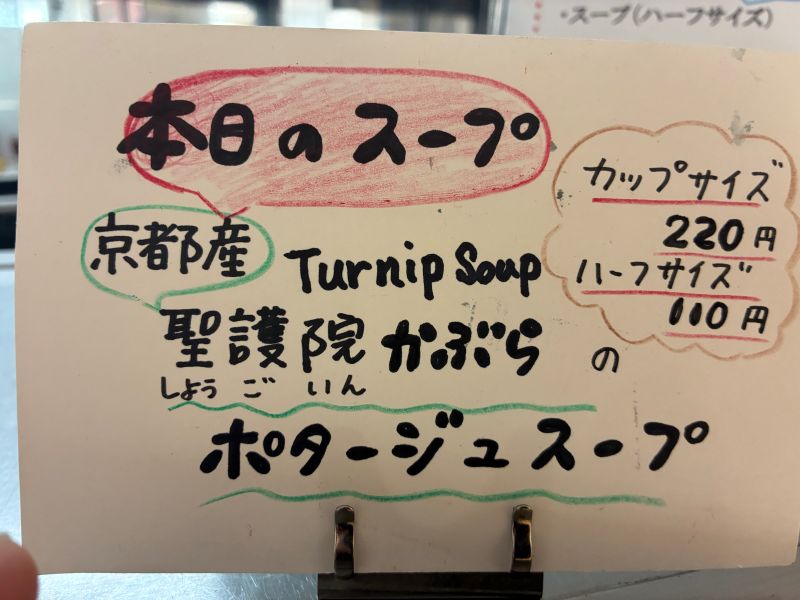 ・スープ(ハーフサイズ)
本日のスープ
カップサイズ
220円
ハーフサイズ
110円
京都産
Turnip Soup
聖護院かぶらの
しょうごいん
ポタージュスープ